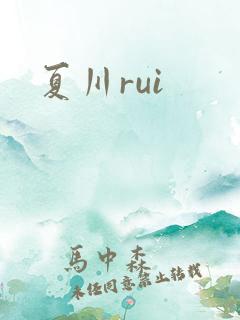 夏川rui
馬中森
未经同意禁止转载